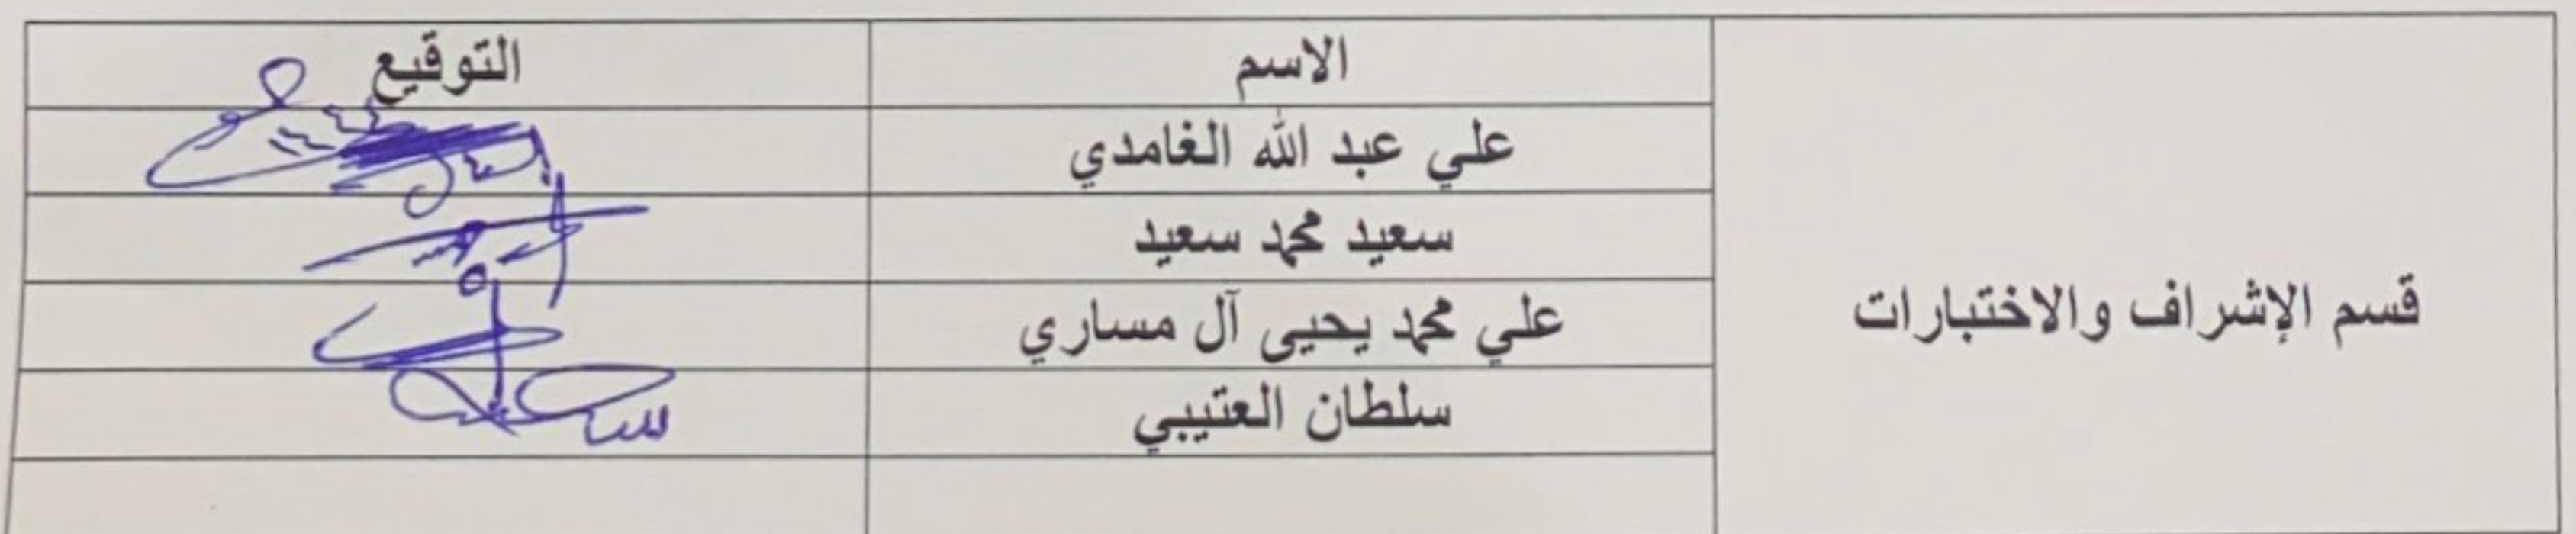 قسم الإشراف والاختبارات
الاسم التوقيع
علي عبد الله الغامدي
سعيد محمد سعيد
علي محمد يحيى آل مساري
سلطان العتيبي